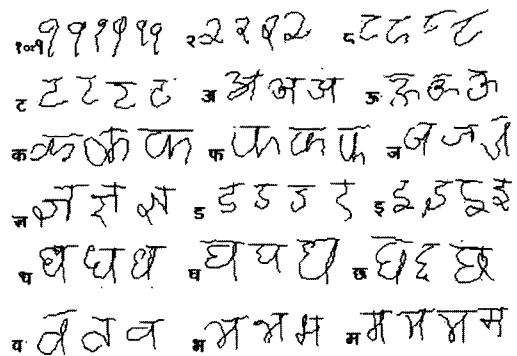 १or१ १ १ १ १ १ १ २ २ २ २ २ ८ ८ ८ ८ ८
ट ट ट ट ट अ अ अ अ ऊ ऊ ऊ ऊ
क क क क फ फ फ फ ज ज ज ज
ज्ञ ज्ञ ज्ञ ज्ञ ड ड ड ड ड इ इ इ इ इ
ध ध ध ध घ घ घ घ छ छ छ छ
व व व व भ भ भ भ म म म म म